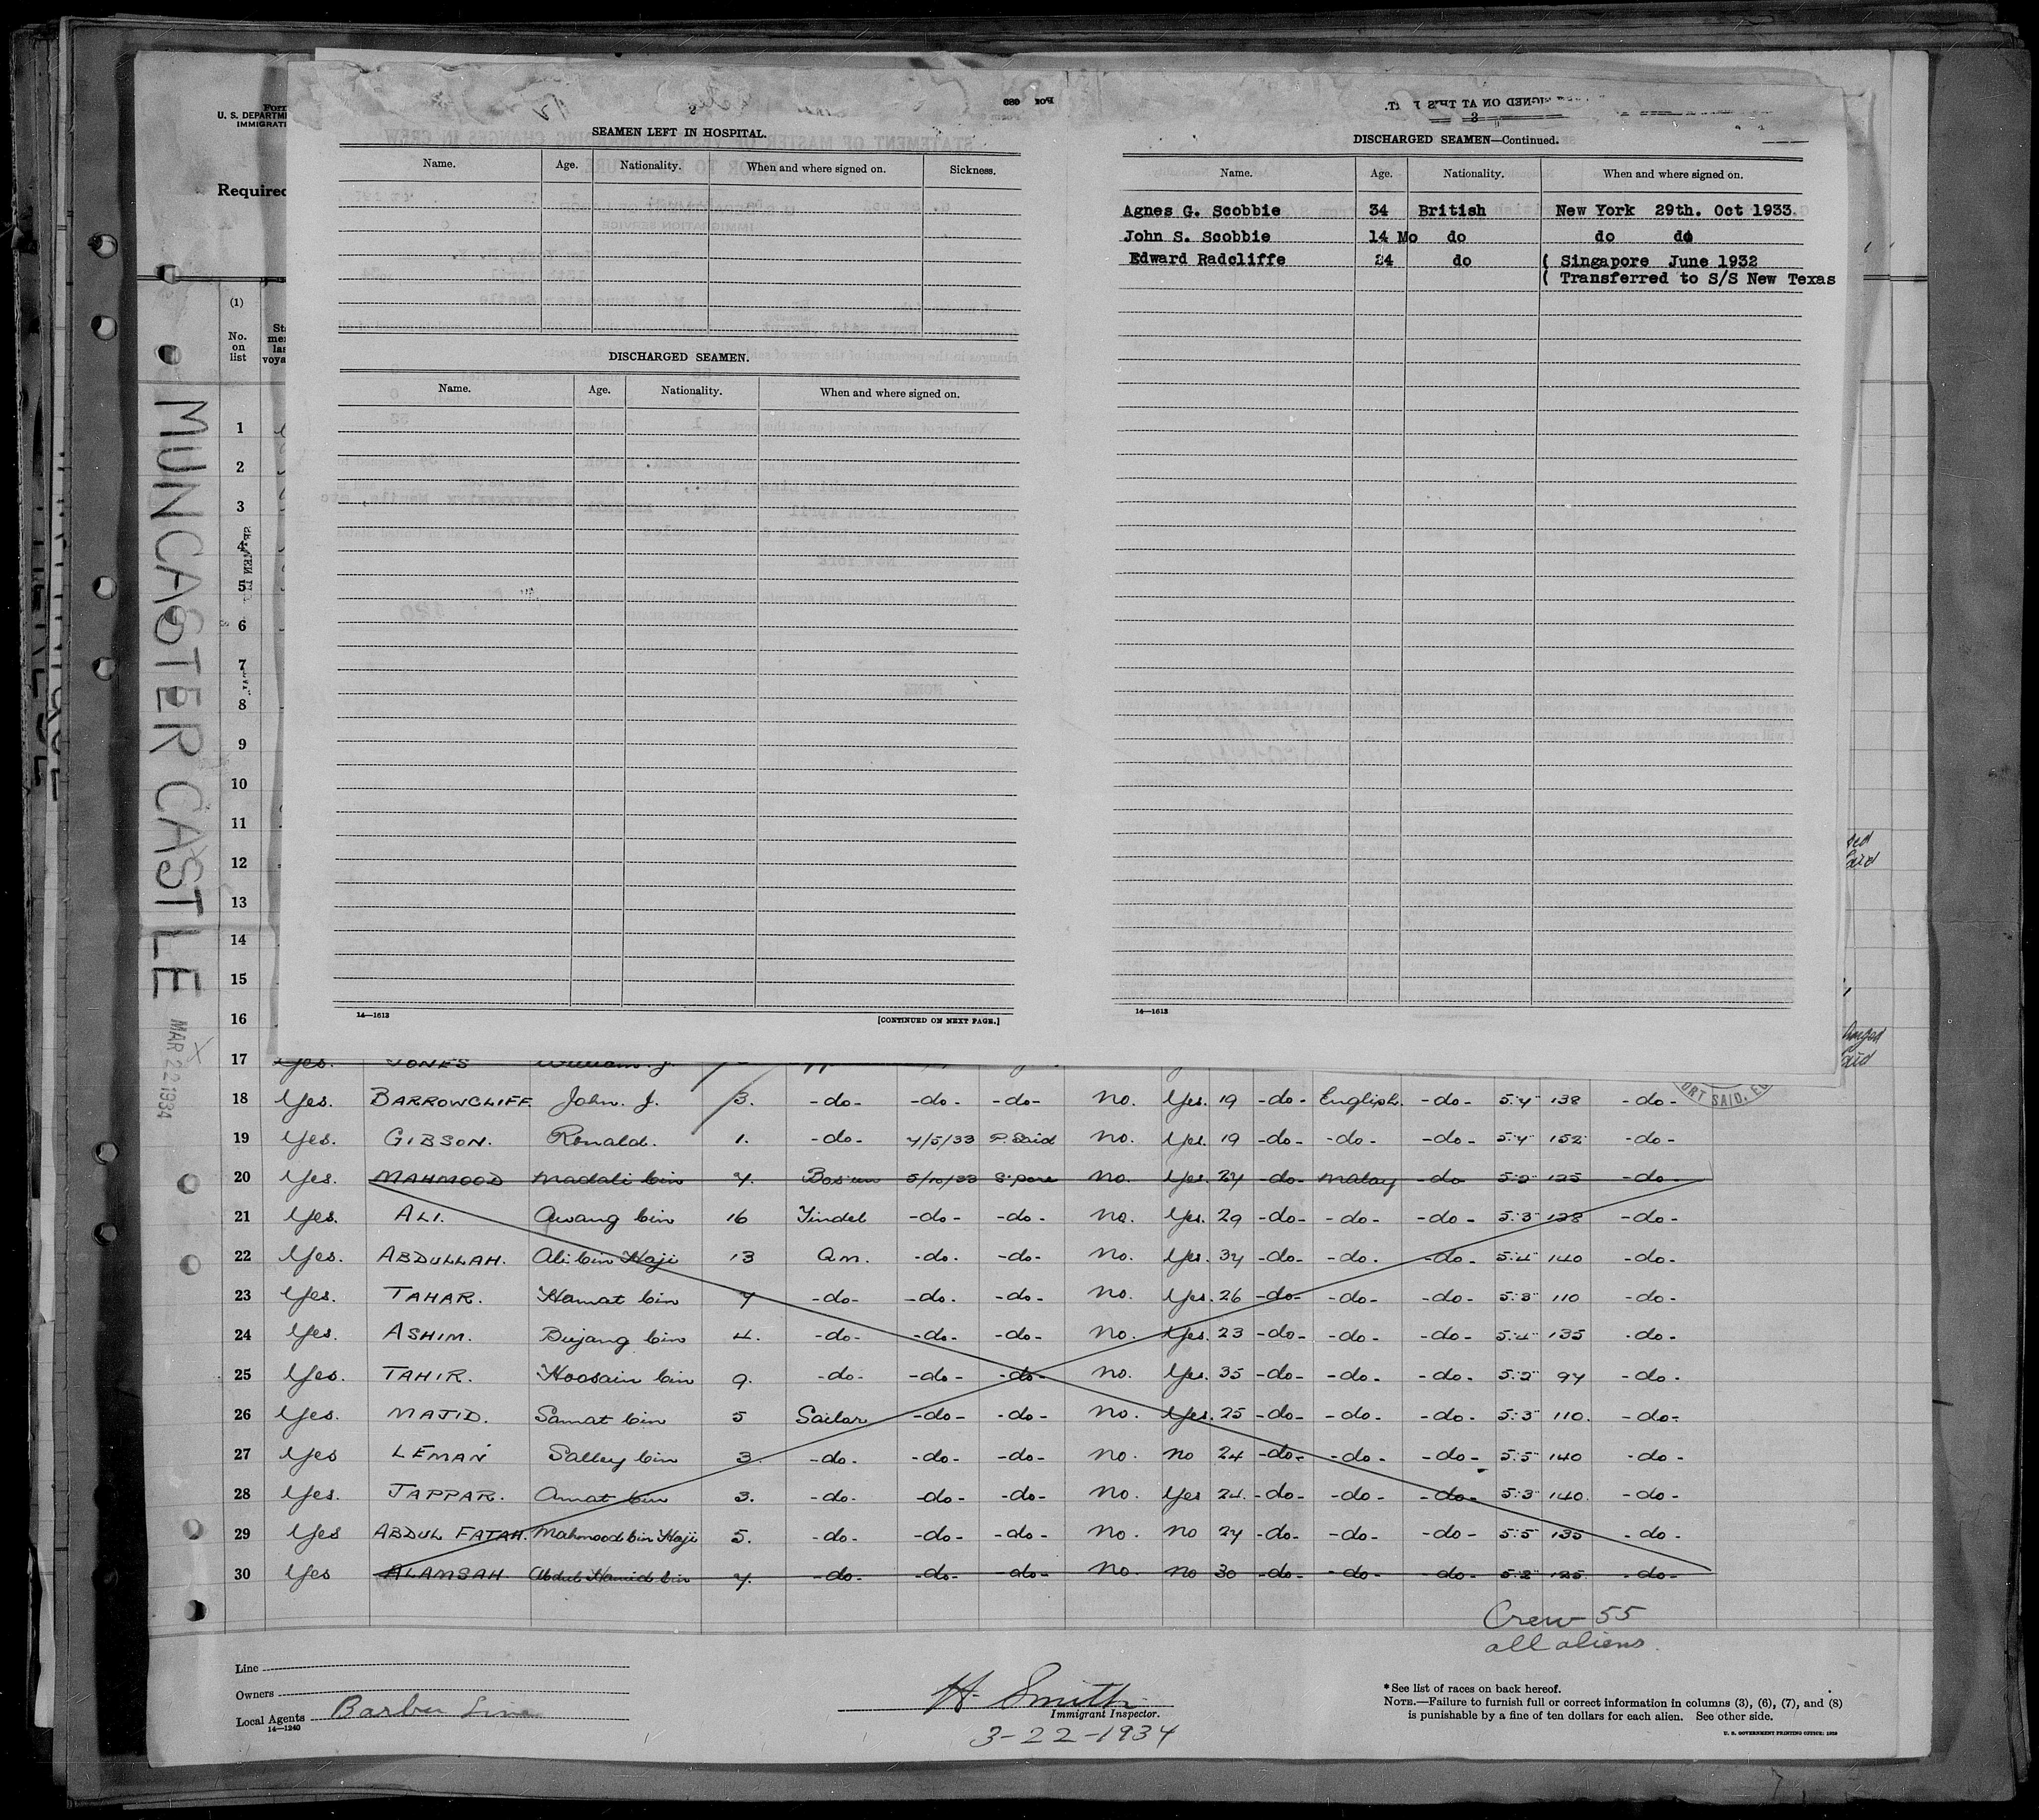 U. S. DEPARTM
IMMIGRATI
Required
MUNCASTER CASTLE
MAR 22 1934
2
SEAMEN LEFT IN HOSPITAL.
Name. Age. Nationality. When and where signed on. Sickness.
DISCHARGED SEAMEN.
Name. Age. Nationality. When and where signed on.
14—1613 [CONTINUED ON NEXT PAGE.]
3
DISCHARGED SEAMEN—Continued.
Name. Age. Nationality. When and where signed on.
Agnes G. Scobbie 34 British New York 29th. Oct 1933.
John S. Scobbie 14 Mo do do do
Edward Radcliffe 24 do ( Singapore June 1932
( Transferred to S/S New Texas
14—1613
(1)
No.
on
list
1
2
3
4
5
6
7
8
9
10
11
12
13
14
15
16
17 Yes. JONES William J.
18 Yes. BARROWCLIFF John. J. 3. -do- -do- -do- No. Yes. 19 -do- English. -do- 5.4 138 -do-
19 Yes. GIBSON. Ronald. 1. -do- 4/5/33 P. Said No. Yes. 19 -do- -do- -do- 5.4 152 -do-
20 Yes. MAHMOOD Madali bin 4. Bos'un 5/10/33 S'pore No. Yes. 24 -do- Malay -do- 5.2 125 -do-
21 Yes. ALI. Awang bin 16 Tindel -do- -do- No. Yes. 29 -do- -do- -do- 5.3 128 -do-
22 Yes. ABDULLAH. Ali bin Haji 13 Q.m. -do- -do- No. Yes. 34 -do- -do- -do- 5.4 140 -do-
23 Yes. TAHAR. Hamat bin 4 -do- -do- -do- No. Yes. 26 -do- -do- -do- 5.3 110 -do-
24 Yes. ASHIM. Bujang bin 4. -do- -do- -do- No. Yes. 23 -do- -do- -do- 5.4 135 -do-
25 Yes. TAHIR. Hoosain bin 9. -do- -do- -do- No. Yes. 35 -do- -do- -do- 5.2 94 -do-
26 Yes. MAJID. Samat bin 5 Sailor -do- -do- No. Yes. 25 -do- -do- -do- 5.3 110. -do-
27 Yes LEMAN Salley bin 3. -do- -do- -do- No. No 24 -do- -do- -do- 5.5 140 -do-
28 Yes. JAPPAR. Amat bin 3. -do- -do- -do- No. Yes 24. -do- -do- -do- 5.3 140. -do-
29 Yes ABDUL FATAH. Mahmood bin Haji 5. -do- -do- -do- No. No 24 -do- -do- -do- 5.5 135 -do-
30 Yes ALAMSAH. Abdul Hamid bin 4. -do- -do- -do- No. No 30 -do- -do- -do- 5.2 125. -do-
Crew 55
all aliens.
Line
Owners
Local Agents Barber Line
14—1240
H. Smith
Immigrant Inspector.
3-22-1934
* See list of races on back hereof.
NOTE.—Failure to furnish full or correct information in columns (3), (6), (7), and (8)
is punishable by a fine of ten dollars for each alien. See other side.